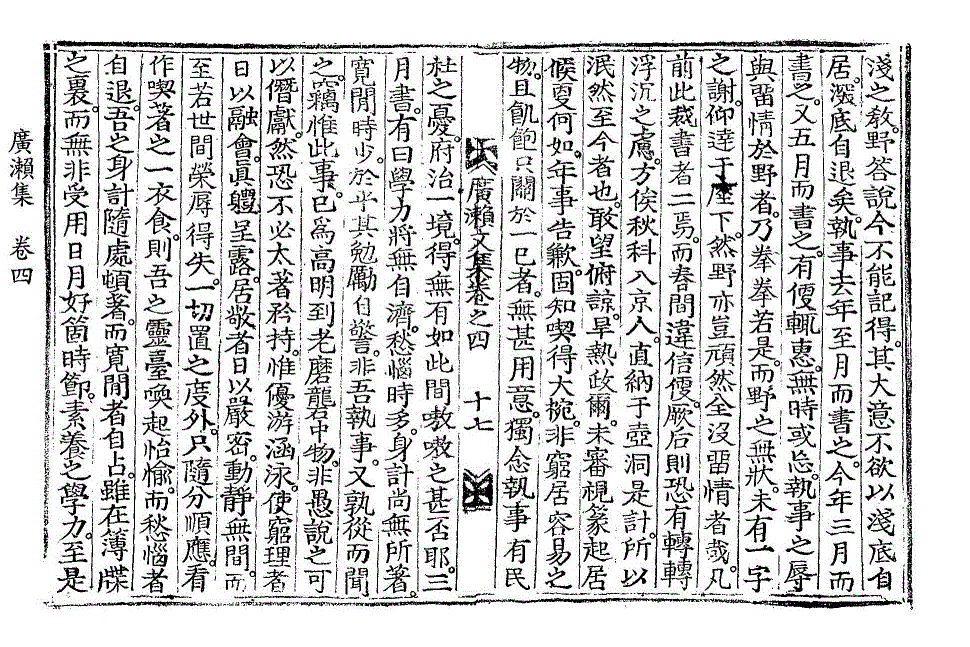 淺之敎。野答說今不能記得。其大意不欲以淺底自
居。潑底自退矣。執事去年至月而書之。今年三月而
書之。又五月而書之。有便輒惠。無時或忘。執事之辱
與留情於野者。乃拳拳若是。而野之無狀。未有一字
之謝。仰達于座下。然野亦豈頑然全沒留情者哉。凡
前此裁書者二焉。而春間違信便。厥后則恐有轉轉
浮沉之慮。方俟秋科入京人。直納于壺洞是計。所以
泯然至今者也。敢望俯諒。早熱政爾。未審視篆起居
候夏何如。年事告歉。固知喫得大椀。非窮居容易之
物。且飢飽只關於一己者。無甚用意。獨念執事有民
廣瀨文集卷之四 十七
社之憂。府治一境。得無有如此間嗷嗷之甚否耶。三
月書。有曰學力將無自濟。愁惱時多。身計尚無所著。
寬閒時少。於乎其勉勵自警。非吾執事。又孰從而聞
之。竊惟此事。已爲高明到老磨礱中物。非愚說之可
以僭獻。然恐不必太著矜持。惟優游涵泳。使窮理者
日以融會。眞軆呈露。居敬者日以嚴密。動靜無間。而
至若世間榮辱得失。一切置之度外。只隨分順應。看
作喫著之一衣食。則吾之靈臺喚起怡愉。而愁惱者
自退。吾之身計隨處頓著。而寬閒者自占。雖在簿牒
之裏。而無非受用日月好箇時節。素養之學力。至是
廣瀨集 卷四